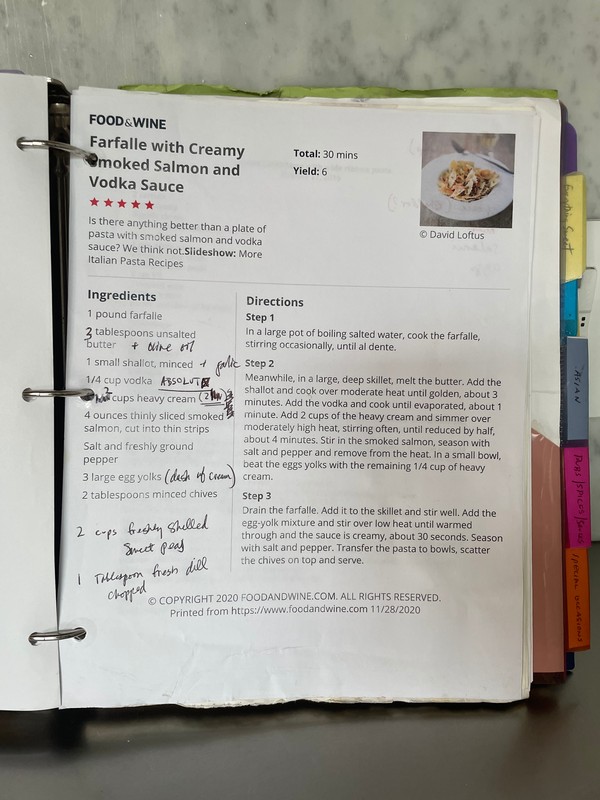 FOOD&WINE
Farfalle with Creamy
Smoked Salmon and
Vodka Sauce
Total: 30 mins
Yield: 6
★★★★★
© David Loftus
Is there anything better than a plate of
pasta with smoked salmon and vodka
sauce? We think not.Slideshow: More
Italian Pasta Recipes
Ingredients
1 pound farfalle
3 tablespoons unsalted
butter + olive oil
1 small shallot, minced + garlic
1/4 cup vodka ABSOLUT
2 cups heavy cream
4 ounces thinly sliced smoked
salmon, cut into thin strips
Salt and freshly ground
pepper
3 large egg yolks (dash of cream)
2 tablespoons minced chives
2 cups freshly shelled
sweet peas
1 Tablespoon fresh dill
chopped
Directions
Step 1
In a large pot of boiling salted water, cook the farfalle,
stirring occasionally, until al dente.
Step 2
Meanwhile, in a large, deep skillet, melt the butter. Add the
shallot and cook over moderate heat until golden, about 3
minutes. Add the vodka and cook until evaporated, about 1
minute. Add 2 cups of the heavy cream and simmer over
moderately high heat, stirring often, until reduced by half,
about 4 minutes. Stir in the smoked salmon, season with
salt and pepper and remove from the heat. In a small bowl,
beat the eggs yolks with the remaining 1/4 cup of heavy
cream.
Step 3
Drain the farfalle. Add it to the skillet and stir well. Add the
egg-yolk mixture and stir over low heat until warmed
through and the sauce is creamy, about 30 seconds. Season
with salt and pepper. Transfer the pasta to bowls, scatter
the chives on top and serve.
© COPYRIGHT 2020 FOODANDWINE.COM. ALL RIGHTS RESERVED.
Printed from https://www.foodandwine.com 11/28/2020
ASIAN
SPECIAL OCCASIONS